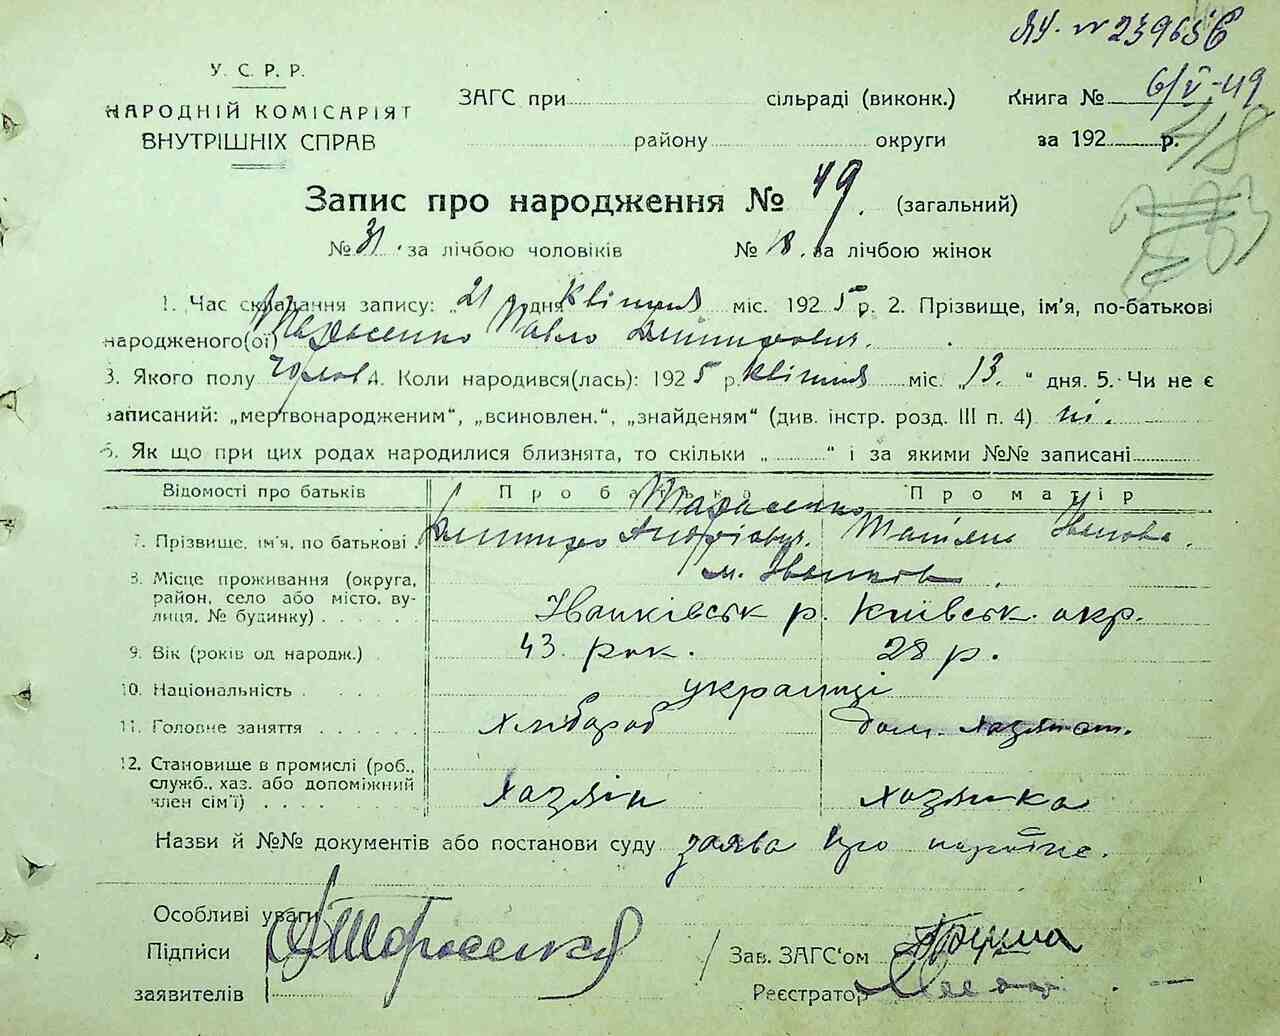 ЯУ. № 239656
У. С. Р. Р.
НАРОДНІЙ КОМІСАРІЯТ
ВНУТРІШНІХ СПРАВ
ЗАГС при сільраді (виконк.) Книга № 6/V-49
району округи за 192 р.
48
Запис про народження № 49. (загальний)
№ 31. за лічбою чоловіків № 18. за лічбою жінок
1. Час складання запису: „21 дня квітня міс. 1925 р. 2. Прізвище, ім'я, по-батькові
народженого(ої) Тарасенко Павло Дмитрович.
3. Якого полу чолов 4. Коли народився(лась): 1925 р. квітня міс. „13. “ дня. 5. Чи не є
записаний: „мертвонародженим“, „всиновлен.“, „знайденям“ (див. інстр. розд. III п. 4) ні.
6. Як що при цих родах народилися близнята, то скільки „ “ і за якими №№ записані
Відомості про батьків Про батька Про матір
Тарасенко
7. Прізвище, ім'я, по батькові . Дмитро Андрієвич. Татіяна Іванова.
м. Іванків.
8. Місце проживання (округа,
район, село або місто, ву-
лиця, № будинку) . . . . . Іванківськ р. Київськ. окр.
9. Вік (років од народж.) . 43. рок. 28 р.
10. Національність . . . . українці
11. Головне заняття . . . . . . хлібороб дом. хазяйст.
12. Становище в промислі (роб.,
служб., хаз. або допоміжний
член сім'ї) . . . . . хазяїн хазяйка
Назви й №№ документів або постанови суду заява про
Особливі уваги
Підписи Тарасенко Зав. ЗАГС'ом
заявителів Реєстратор